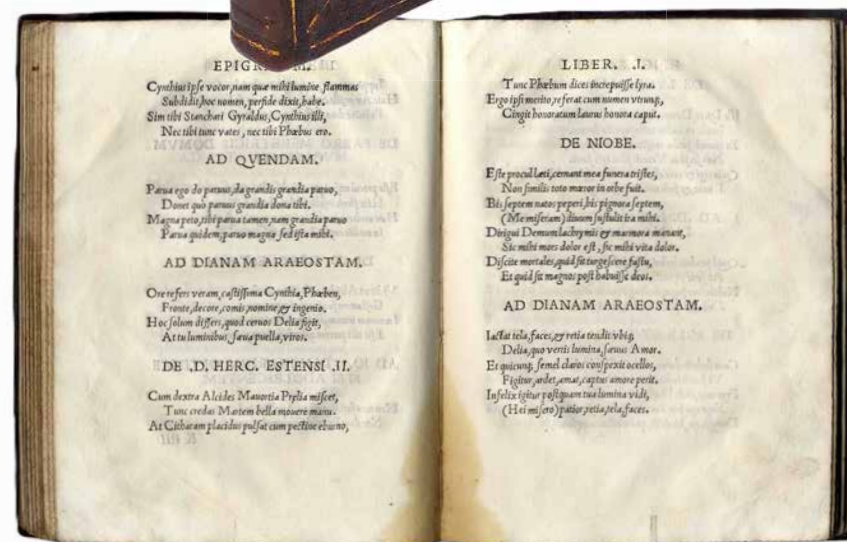 EPIGR
Cynthius ipse vocor, nam quæ mihi lumine flammas
Subdidit, hoc nomen, perfide dixit, habe.
Sim tibi Stanchari Gyraldus, Cynthius illi,
Nec tibi tunc vates, nec tibi Phœbus ero.
AD QVENDAM.
Parua ego do paruus, da grandis grandia paruo,
Donet quò paruus grandia dona tibi.
Magna peto, tibi parua tamen, nam grandia paruo
Parua quidem, paruo magna sed ista mihi.
AD DIANAM ARAEOSTAM.
Ore refers veram, castissima Cynthia, Phœben,
Fronte, decore, comis, nomine, & ingenio.
Hoc solum differs, quod ceruos Delia figit,
At tu luminibus, sæua puella, viros.
DE .D. HERC. ESTENSI .II.
Cum dextra Alcides Mauortia Pręlia miscet,
Tunc credas Martem bella mouere manu.
At Citharam placidus pulsat cum pectine eburno,
LIBER. .I.
Tunc Phœbum dices increpuisse lyra.
Ergo ipsi merito, referat cum numen vtrunq;,
Cingit honoratum laurus honora caput.
DE NIOBE.
Este procul læti, cernant mea funera tristes,
Non similis toto mœror in orbe fuit.
Bis septem natos peperi, bis pignora septem,
(Me miseram) diuum sustulit ira mihi.
Dirigui Demum lachrymis & marmora manant,
Sic mihi mors dolor est, sic mihi vita dolor.
Discite mortales, quid sit turgescere fastu,
Et quid sit magnos post habuisse deos.
AD DIANAM ARAEOSTAM.
Iactat tela, faces, & retia tendit vbiq;
Delia, quo vertis lumina, sæuus Amor.
Et quicunq; semel claros conspexit ocellos,
Figitur, ardet, amat, captus amore perit.
Infelix igitur postquam tua lumina vidi,
(Hei misero) patior, retia, tela, faces.